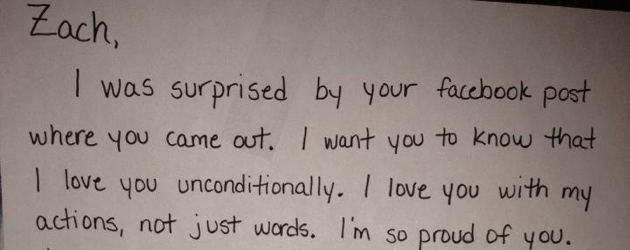 Zach,
I was surprised by your facebook post
where you came out. I want you to know that
I love you unconditionally. I love you with my
actions, not just words. I'm so proud of you.